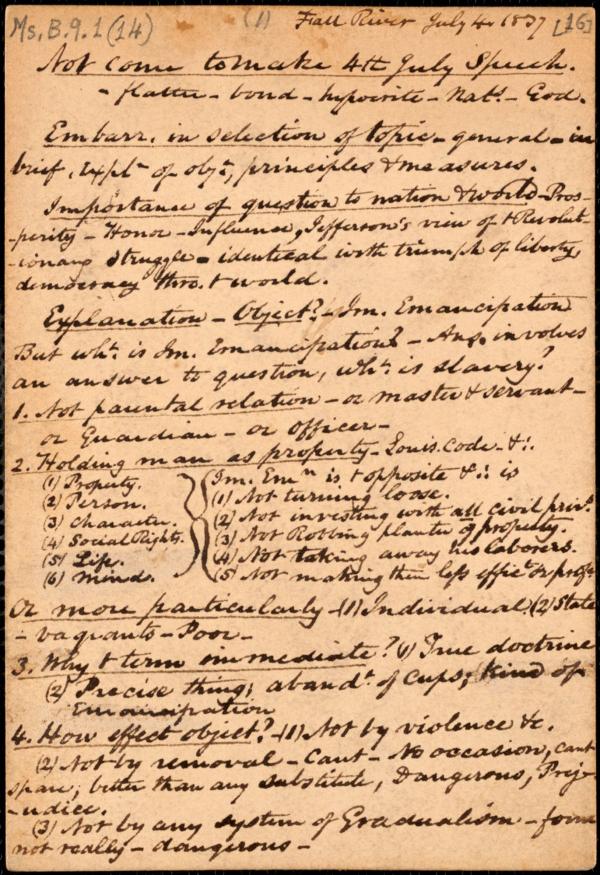 Ms. B. 9. 1 (14) (1) Fall River July 4. 1837 [16]
Not come to make 4th July Speech.
- flatter - bond - hypocrite - Nat.s - God.
Embarr. in selection of topic - general - in
brief, Expl.n of obj.t, principles & measures.
Importance of question to nation & world - Pros-
-perity - Honor - Influence, Jefferson's view of t Revolut-
-ionary struggle - identical with triumph of liberty,
democracy thro. t world.
Explanation - Object? - Im. Emancipation
But wh.t is Im. Emancipation? - Ans. involves
an answer to question, wh.t is slavery?
1. Not parental relation - or master & servant -
or Guardian - or officer -
2. Holding man as property - Louis. Code - &c.
(1) Property.
(2) Person.
(3) Character.
(4) Social Rights.
(5) Life.
(6) Mind.
Im. Em.n is t opposite &c. is
(1) Not turning loose.
(2) Not investing with all civil priv.s
(3) Not Robbing planter of property.
(4) Not taking away his laborers.
(5) Not making them less effic.t or
Or more particularly - (1) Individual. (2) State
- vagrants - Poor -
3. Why t term immediate? (1) True doctrine
(2) Precise thing; aband.t of Kind of
Emancipation
4. How effect object? - (1) Not by violence &c.
(2) Not by removal - Cant - No occasion, cant
spare; better than any substitute, Dangerous, Prej-
-udice.
(3) Not by any system of Gradualism - form
not really - dangerous -